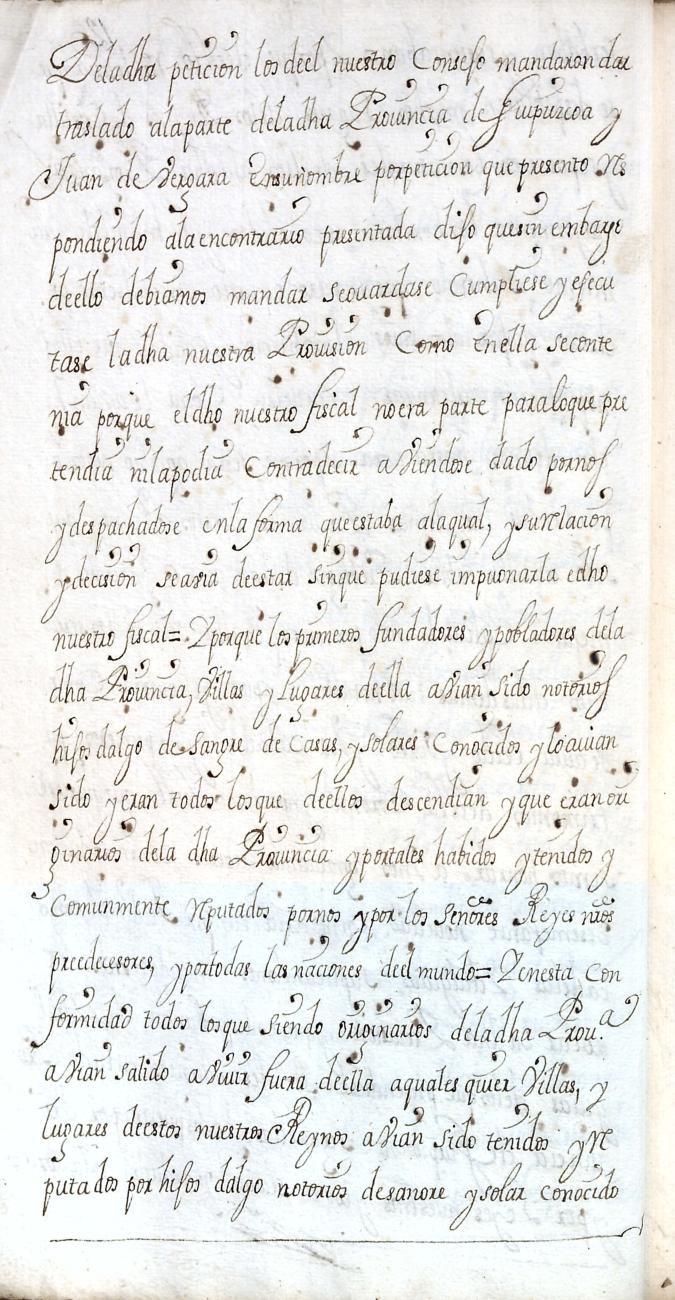 Deladha peticion los deel nuestro Consejo mandaron dar
traslado alaparte deladha Prouincia de Guipuzcoa y
Juan de Vergara Ensunombre porpeticion que presento Res
pondiendo ala encontrario presentada dijo quesin embargo
deello debiamos mandar seguardase Cumpliese y ejecu
tase ladha nuestra Prouision Como Enella seconte
nia porque eldho nuestro fiscal noera parte paraloque pre
tendia nilapodia Contradecir aViendose dado pornos
y despachadose enla forma que estaba alaqual, y su Relacion
y decision seauia deestar sinque pudiese impugnarla edho
nuestro fiscal= Y porque los primeros fundadores y pobladores dela
dha Prouincia, Villas y Lugares deella aVian sido notorios
hijos dalgo de sangre de Casas, y solares Conocidos y lo auian
sido y eran todos los que deellos descendian y que eran ori
ginarios dela dha Prouincia y portales habidos y tenidos y
Comunmente Reputados pornos y por los señores Reyes nros
predecesores, y portodas las naciones deel mundo= Y enesta Con
formidad todos los que siendo originarios deladha Prou.a
aVian salido aViuir fuera deella aquales quier Villas, y
lugares deestos nuestros Reynos aVian sido tenidos y Re
putados por hijos dalgo notorios desangre y solar conocido